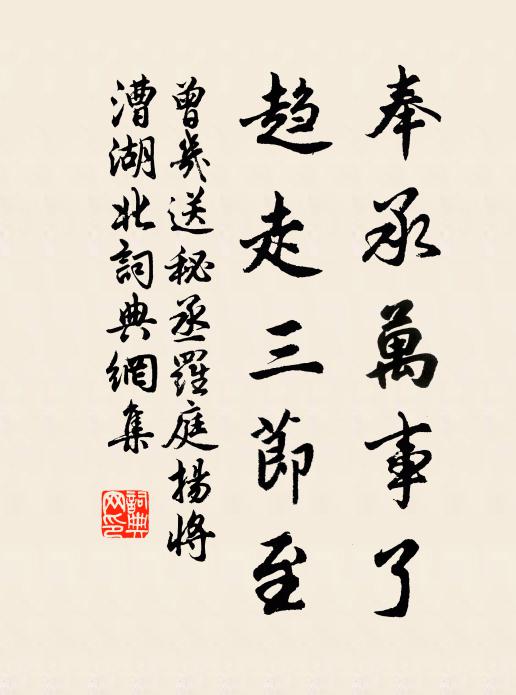 奉承萬事了
趋走三節至
曾幾送秘丞羅庭揚將
漕湖北詞典網集
詞典网印